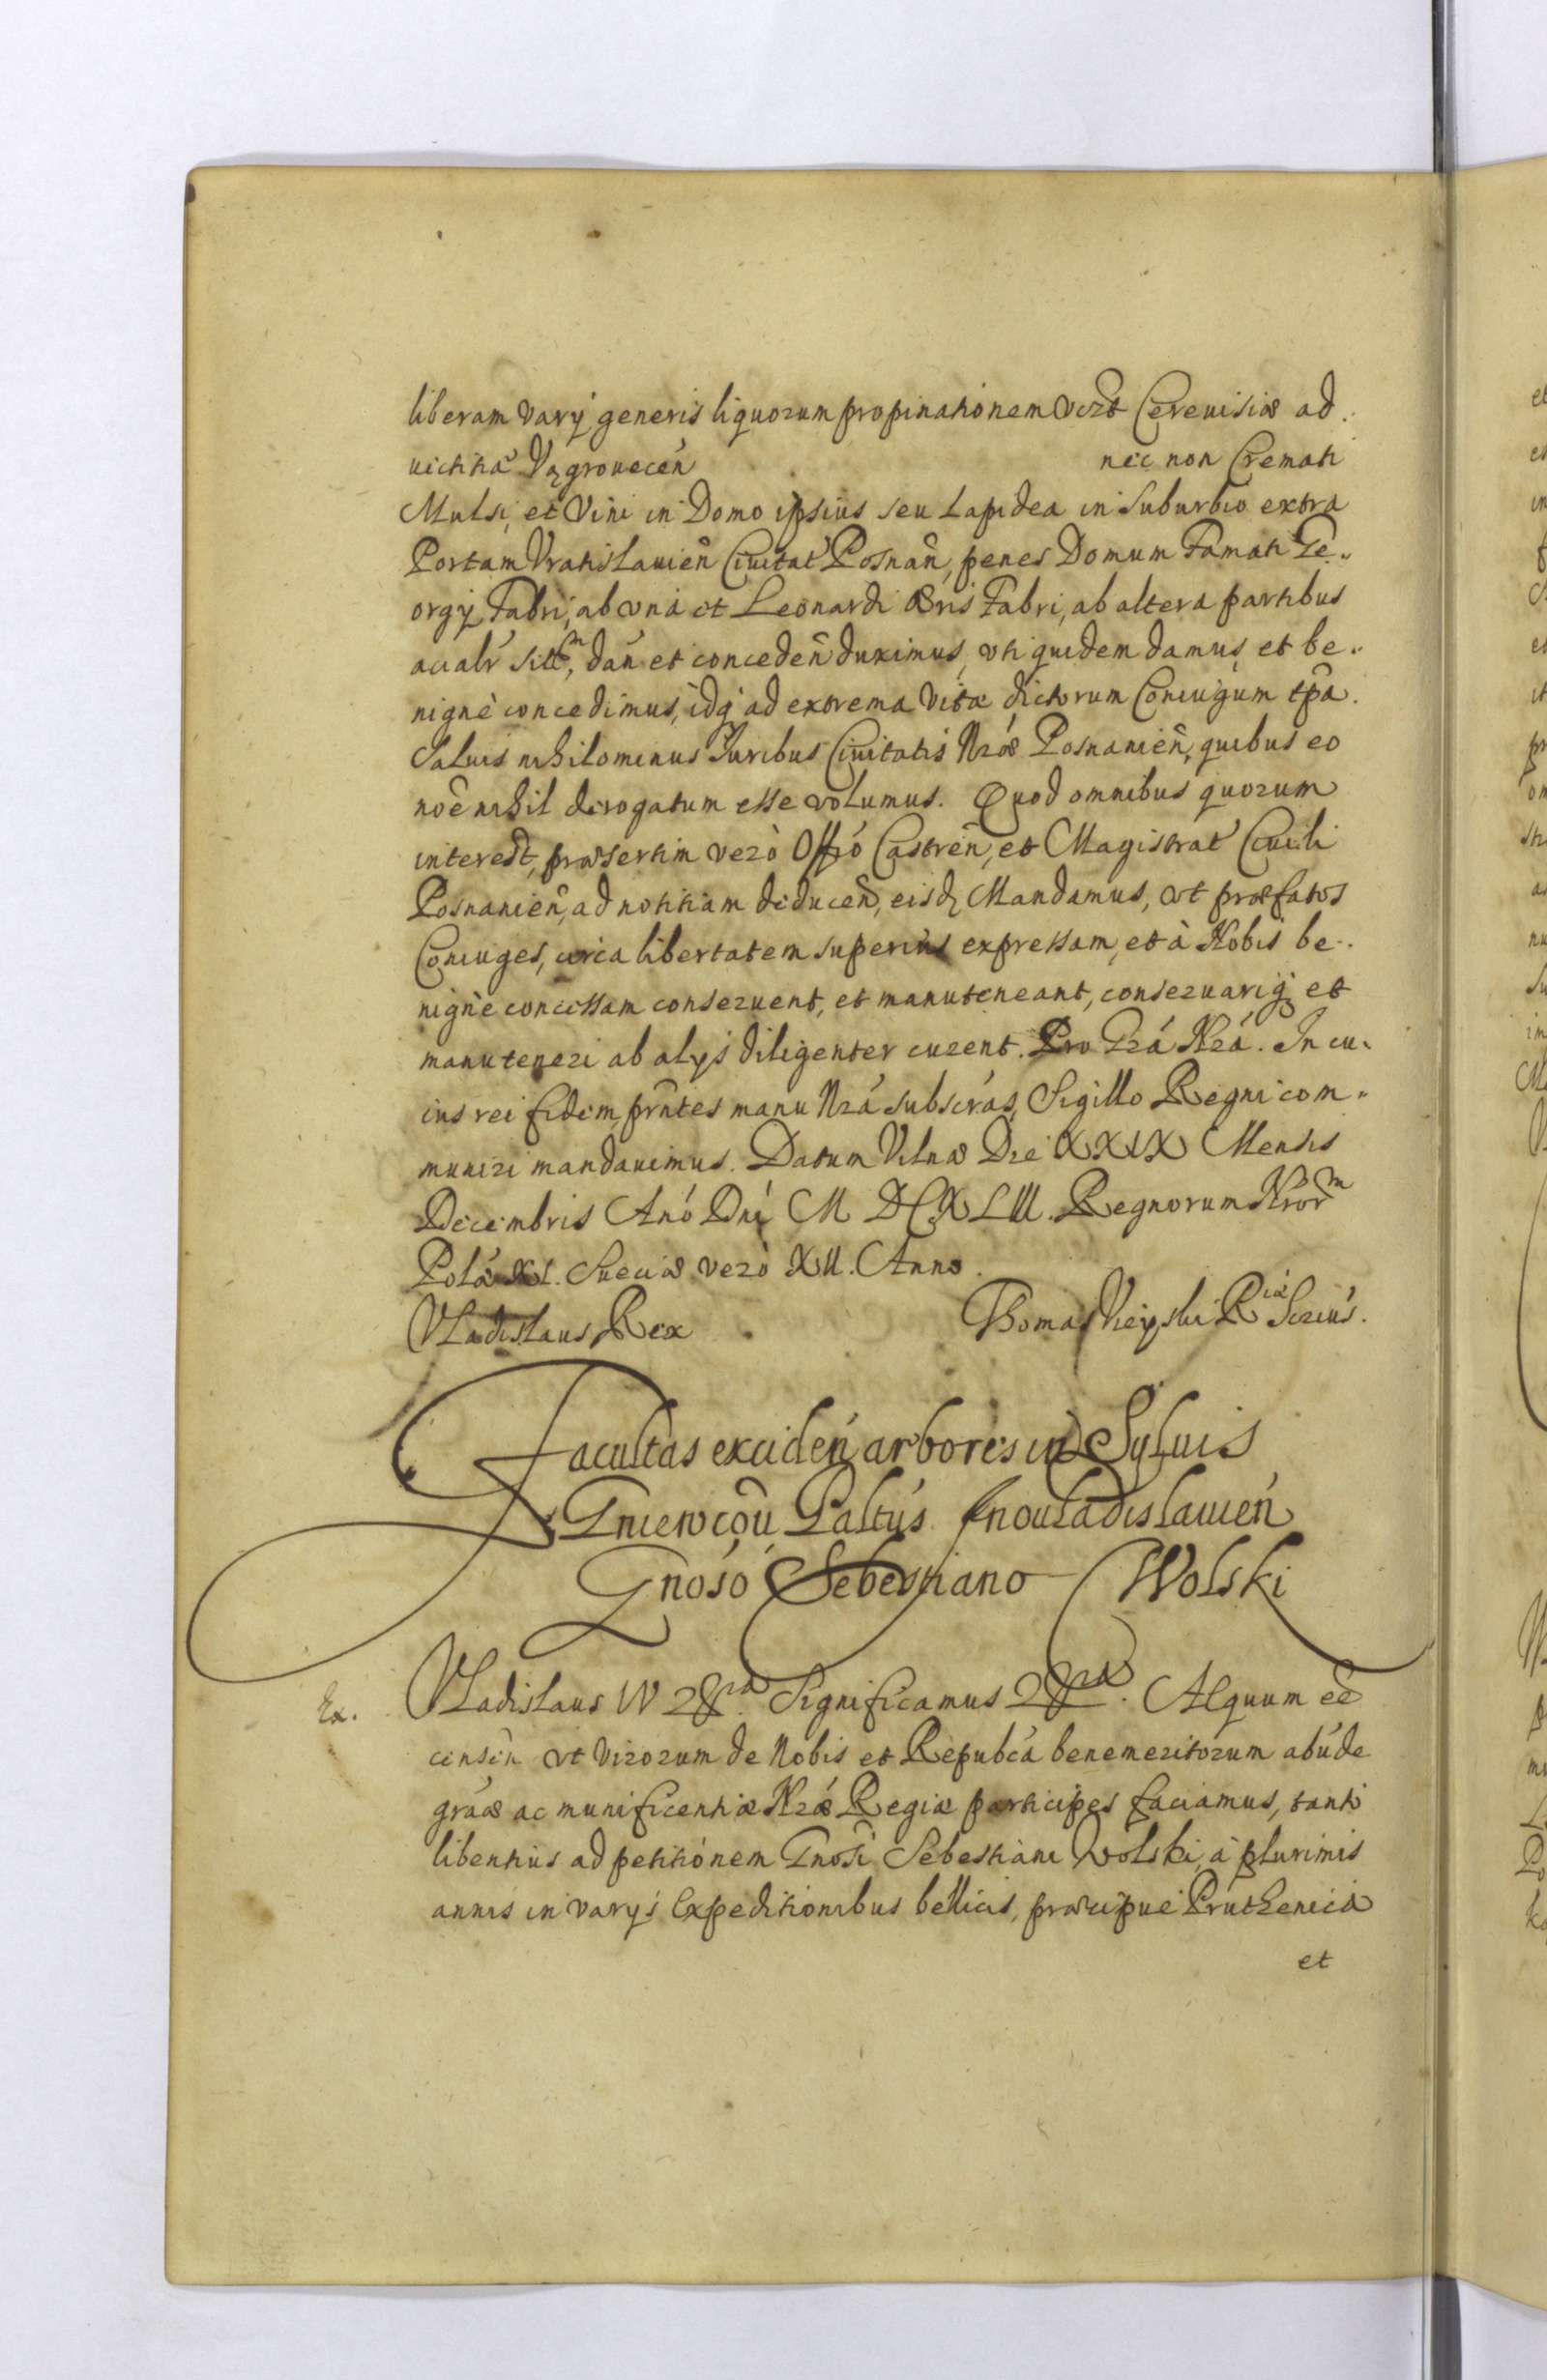 liberam varÿ generis liquorum propinationem vizt Cereuisiæ ad.
uictitiæ Vągrouecen̄ nec non Cremati
Mulsi, et Vini in Domo ipsius seu Lapidea in Suburbio extra
Portam Vratislauien̄ Ciuitat Posnan̄, penes Domum Famati Ge„
orgÿ Fabri, ab vna et Leonardi Fabri, ab altera partibus
dan̄ et conceden̄ duximus, vti quidem damus, et be„
nignè concedimus, idq́ ad extrema vitæ dictorum Coniugum tpa.
Saluis nihilominus Iuribus Ciuitatis Nræ Posnanien̄, quibus eo
noē nihil derogatum esse volumus. Quod omnibus quorum
interest, præsertim verò Offió Castren̄, et Magistrat Ciuili
Posnanien̄, ad notitiam deducen̄, eisdą Mandamus, vt præfatos
Coniuges, circa libertatem superius expressam, et à Nobis be„
nignè concessam conseruent, et manuteneant, conseruariq́ et
manuteneri ab alÿs diligenter curent. Pro Grá Nrá. In cu„
ius rei fidem, prn̄tes manu Nrá subscrás, Sigillo Regni com„
muniri mandauimus. Datum Vilnæ Die XXIX Mensis
Decembris Anó Dnī M DC XLII. Regnorum Nror m
Polæ XI. Sueciæ verò XII. Anno.
Vladislaus Rex Thomas Vieyski R iæ Scrius.
Facultas exciden̄ arbores in Syluis
Gniewcou Paltús Inouladislauien̄
Gnósó Sebestiano Wolski
Ex. Vladislaus IV &ra Significamus &ra. Æquum eē
censen̄ vt virorum de Nobis et Repubcá benemeritorum abúde
gráæ ac munificentiæ Nræ Regiæ participes faciamus, tanto
libentius ad petitionem Gnosi Sebestiani Wolski, à plurimis
annis in varÿs Expeditionibus bellicis, præcipue Pruthenica
et